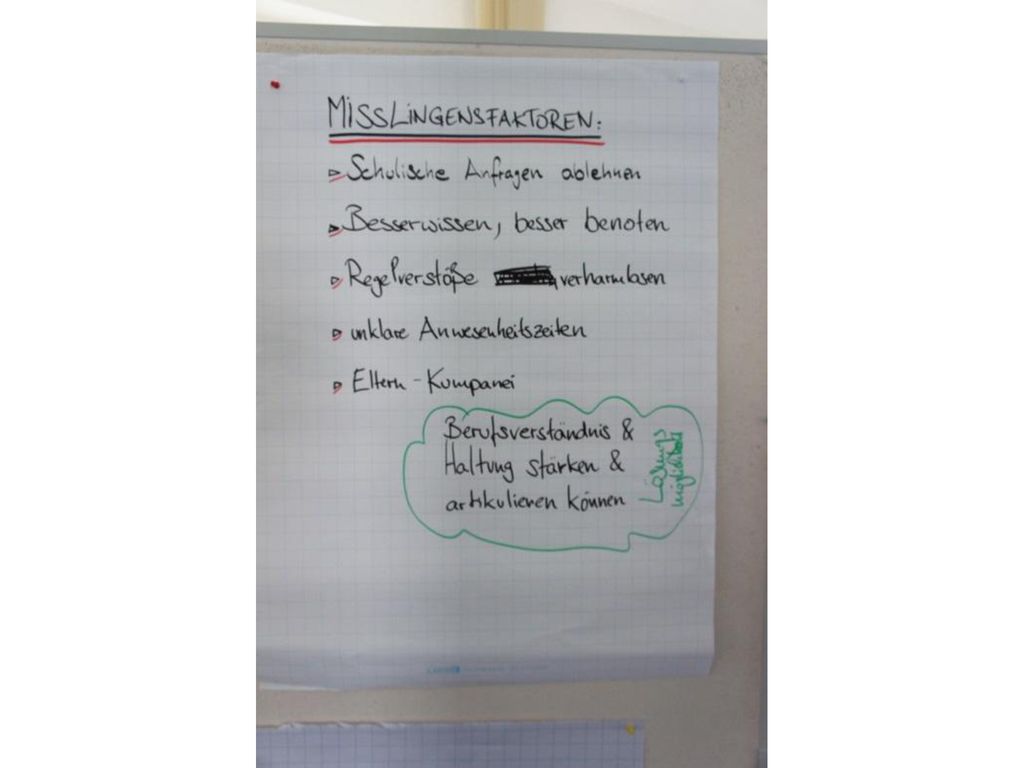 MISSLINGENSFAKTOREN:
Schulische Anfragen ablehnen
Besserwissen, besser benoten
Regelverstöße verharmlosen
unklare Anwesenheitszeiten
Eltern - Kumpanei
Berufsverständnis &
Haltung stärken &
artikulieren können
Lösungs
möglichkeit